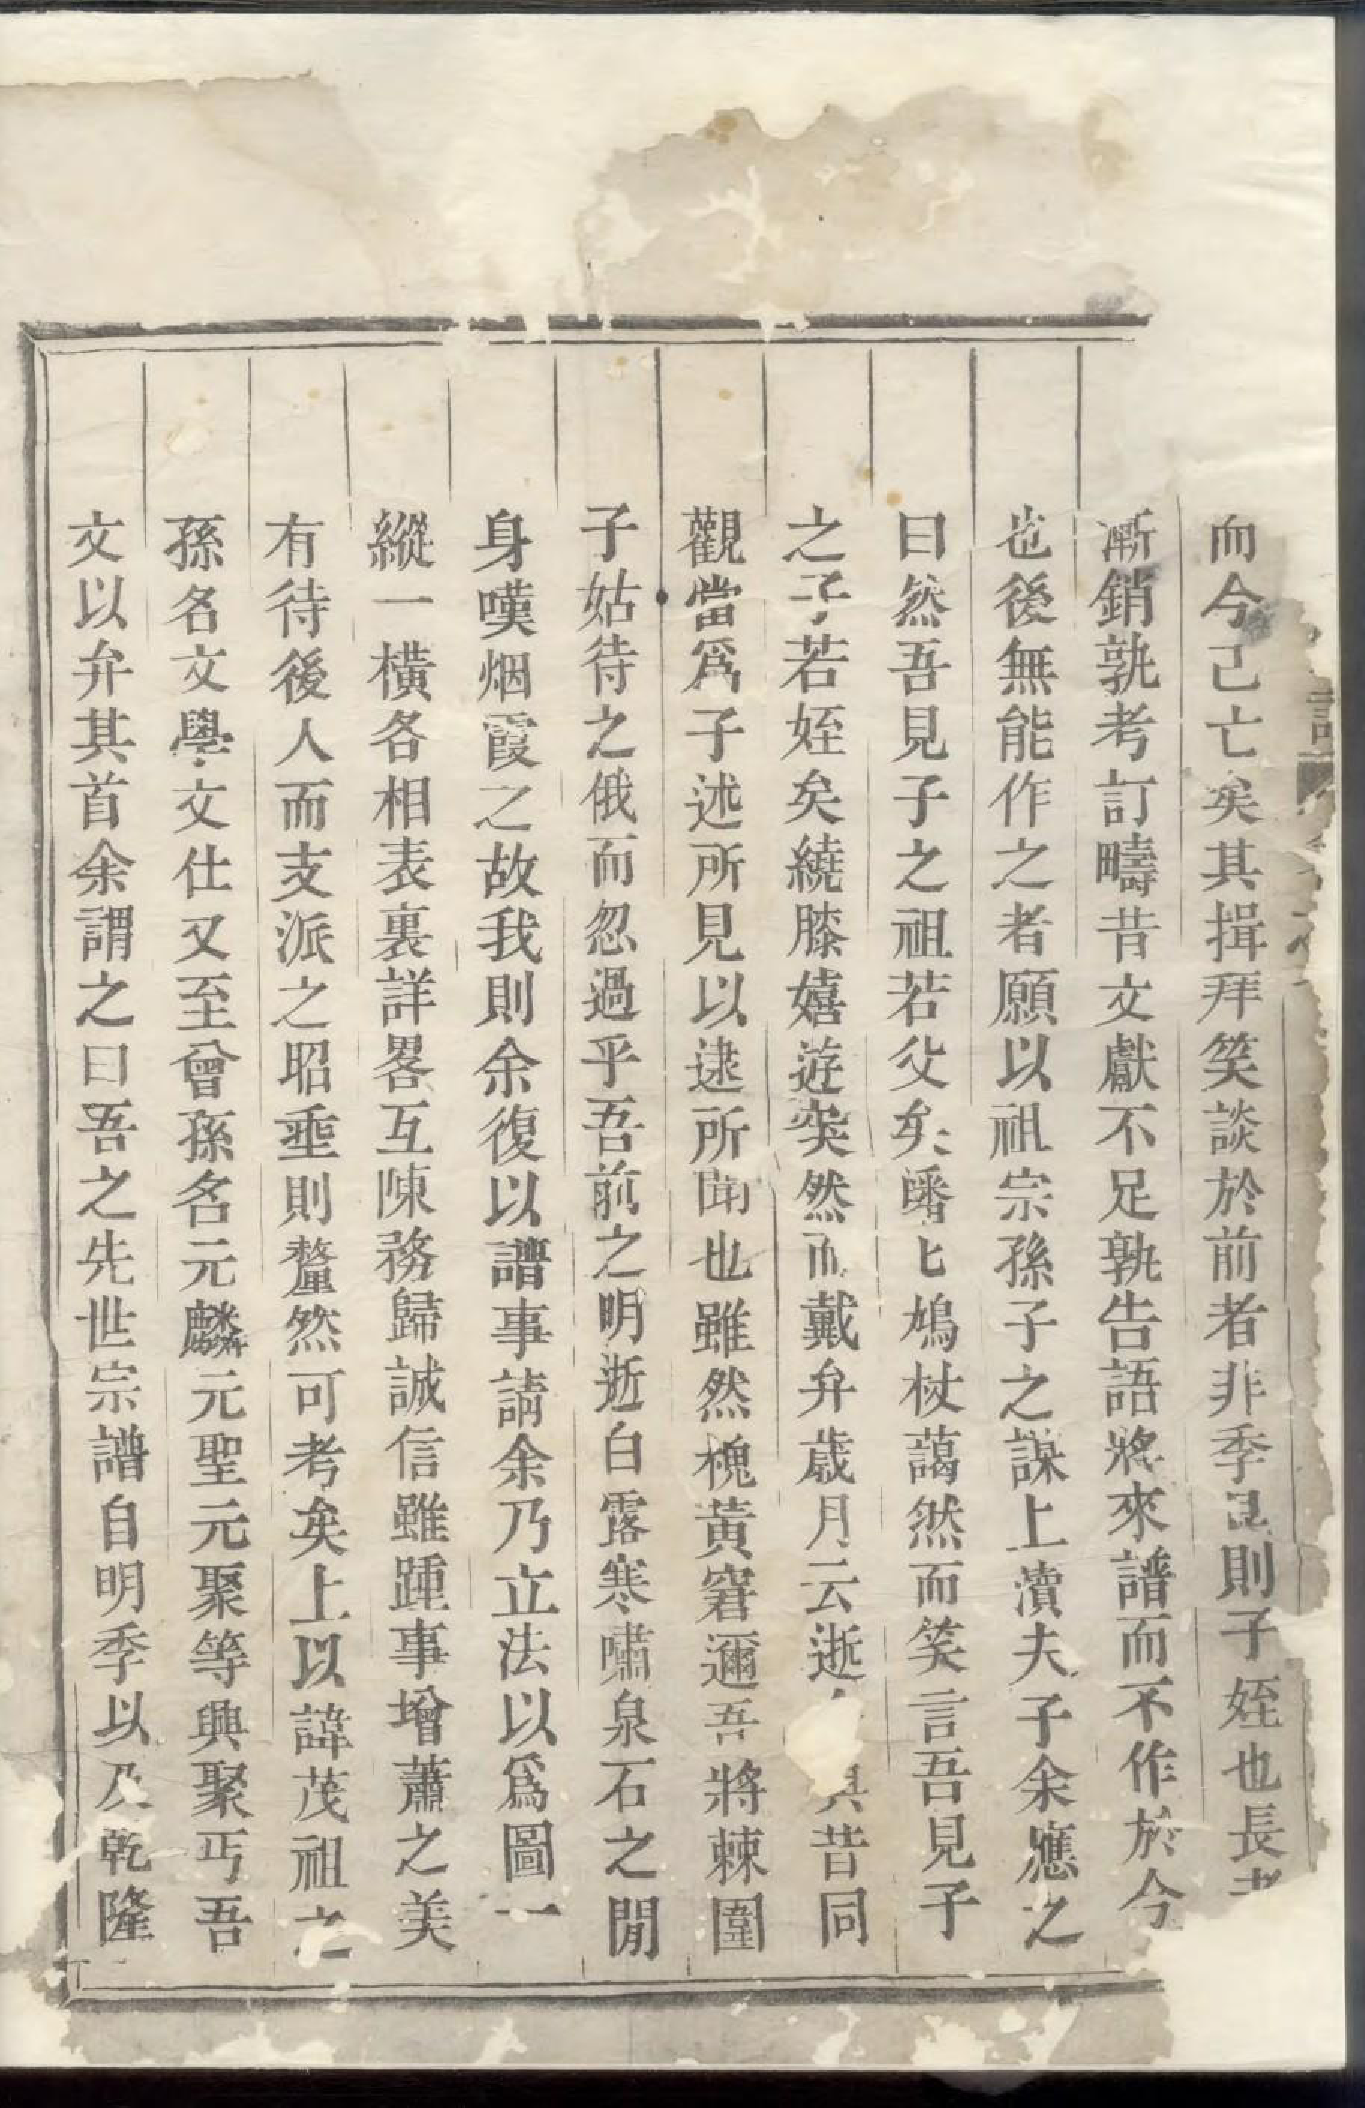 而今己亡矣其揖拜笑談於前者非季昆則子姪也長者
漸銷孰考訂疇昔文獻不足孰告語將來譜而不作於今
也後無能作之者願以祖宗孫子之謀上瀆夫子余應之
曰然吾見子之祖若父矣皤匕鳩杖藹然而笑言吾見子
之子若姪矣繞膝嬉遊突然而戴弁歲月云逝其昔同
觀當爲子述所見以逮所聞也雖然槐黃窘邇吾將棘圍
子姑待之俄而忽過乎吾前之明逝白露寒嘯泉石之閒
身嘆烟霞之故我則余復以譜事請余乃立法以爲圖一
縱一橫各相表裏詳畧互陳務歸誠信雖踵事增蕭之美
有待後人而支派之昭埀則釐然可考矣上以諱茂祖之
孫名文學文仕又至曾孫名元麟元聖元聚等興聚丐吾
文以弁其首余謂之曰吾之先世宗譜自明季以及乾隆